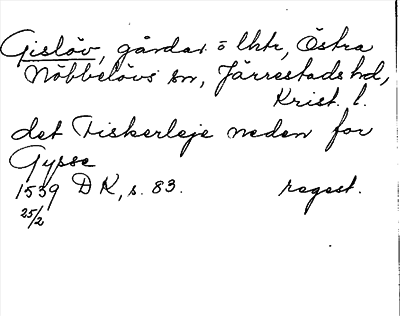 Gislöv, gårdar o lhtr, Östra
Nöbbelövs sn, Järrestads hd,
Krist. l.
det Fiskerleje neden for
Gypse
1539 DK, s. 83. regest.
25/2